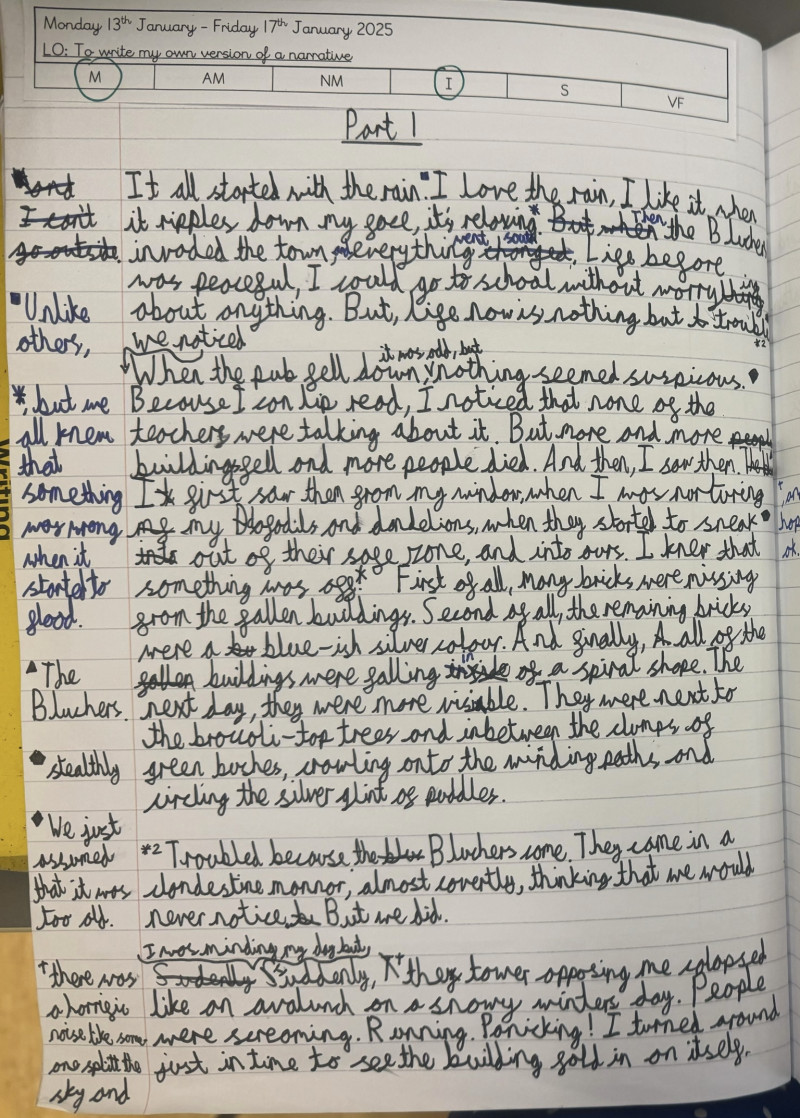 Monday 13th January – Friday 17th January 2025
LO: To write my own version of a narrative
M AM NM I S VF
Part 1
It all started with the rain. I love the rain, I like it, when
it ripples down my face, it's relaxing.* But when Then the Bluchers
invaded the town, and everything changed went south. Life before
was peaceful, I could go to school without worrying
about anything. But, life now is nothing but troubl
*2
we noticed
it was odd, but
When the pub fell down, nothing seemed suspicous.
Because I can lip read, I noticed that none of the
teachers were talking about it. But more and more peopl
buildings fell and more people died. And then, I saw them.
I first saw them from my window, when I was nurturing
my Dafodils and dandelions, when they started to sneak
into out of their safe zone, and into ours. I knew that
something was off.* First of all, many bricks were missing
from the fallen buildings. Second of all, the remaining bricks
were a blue-ish silver colour. And finally, all of the
fallen buildings were falling inside in of a spiral shape. The
next day, they were more visiable. They were next to
the broccoli-top trees and inbetween the clumps of
green buches, crawling onto the winding paths and
circling the silver glint of puddles.
*2 Troubled because the blu Bluchers come. They came in a
clandestine mannor, almost covertly, thinking that we would
never notice. But we did.
I was minding my day but,
Sudenly Suddenly, they tower opposing me colapsed
like an avalunch on a snowy winters day. People
were screaming. Running. Panicking! I turned around
just in time to see the building fold in on itself.
and
I can't
go outside.
Unlike
others,
*, but we
all knew
that
something
was wrong
when it
started to
flood.
The
Bluchers.
stealthly
We just
assumed
that it was
too old.
there was
a horrific
noise like some
one splitt the
sky and
hop
ok.
Writing